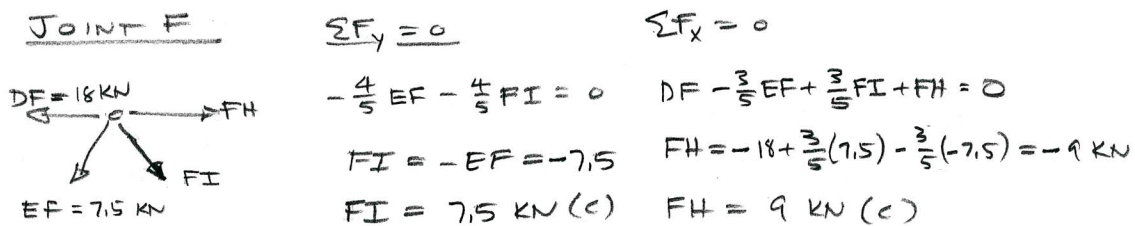 JOINT F
DF = 18 KN
FH
FI
EF = 7,5 KN
ΣFy = 0
-4/5 EF - 4/5 FI = 0
FI = -EF = -7,5
FI = 7,5 KN (C)
ΣFx = 0
DF - 3/5 EF + 3/5 FI + FH = 0
FH = -18 + 3/5 (7,5) - 3/5 (-7,5) = -9 KN
FH = 9 KN (C)